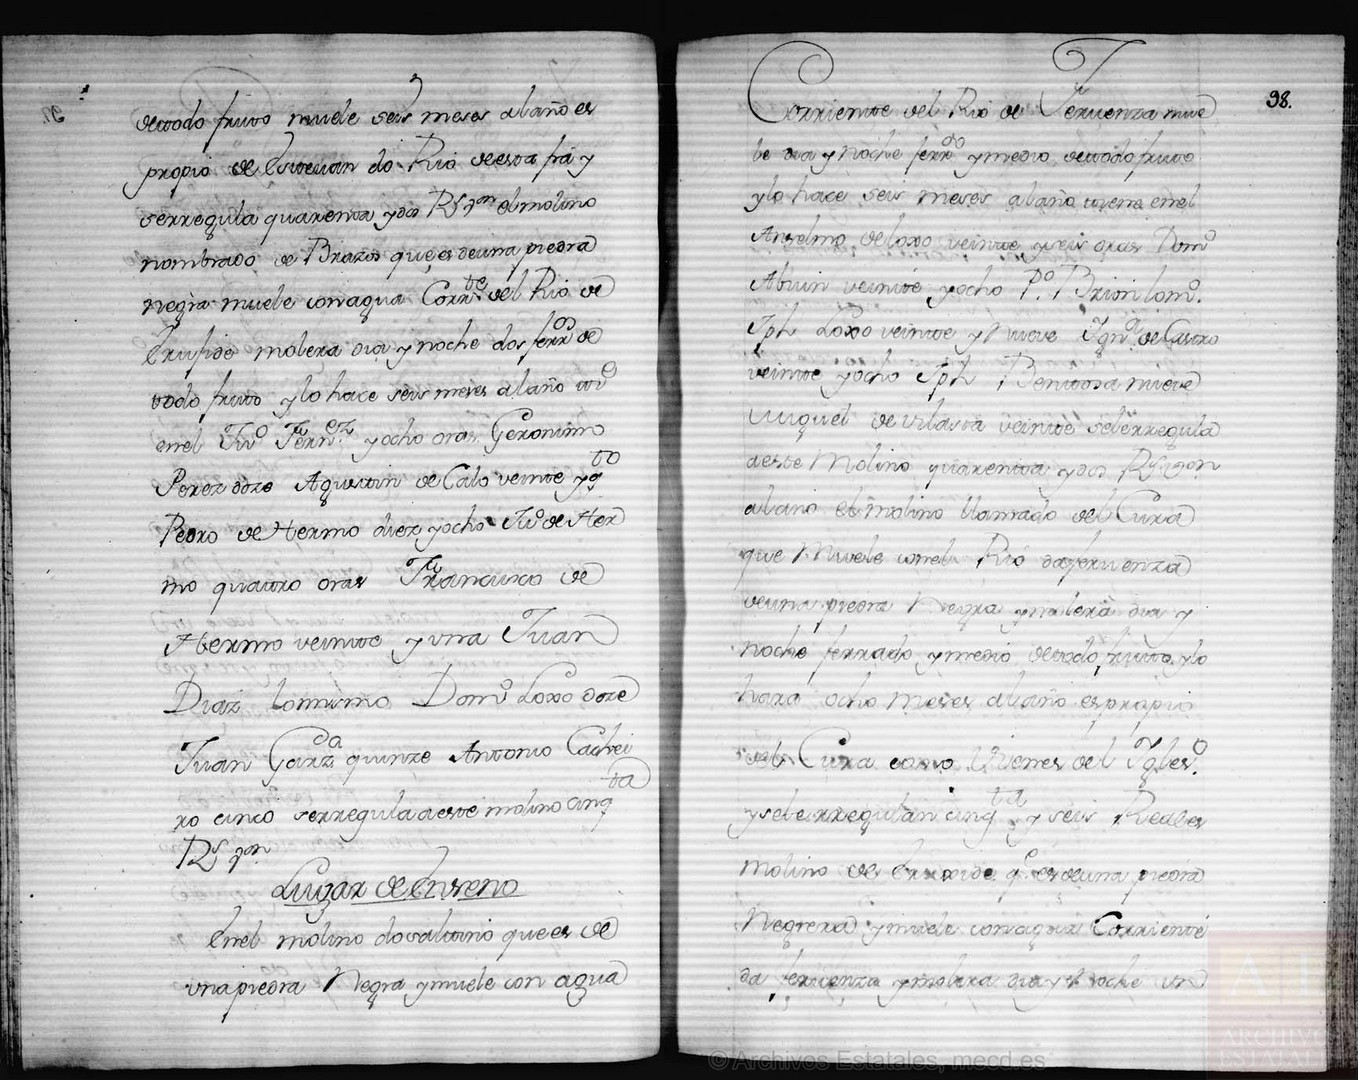 detodo fruto muele seis meses alaño es
propio de Estevan do Rio deesta frã y
serregula quarenta ydos Rs von el molino
nombrado de Brazos quees deuna piedra
negra muele conagua Corrte del Rio de
molera dia y noche dos ferros de
todo fruto ylo hace seis meses alaño tne
enel Juo Fernez yocho oras Geronimo
Perez doze Agustin de Calo veinte yqto
Pedro de Hermo diez yocho Juo de Her
mo quatro oras Francisco de
Hermo veinte y una Juan
Diaz lomismo Domo Loxo doze
Juan Garza quinze Antonio Cachei
ro cinco serregula aeste molino cinqta
Rs von
Lugar de Enseno
Enel molino dosaltiño quees de
una piedra Negra ymuele con agua
98.
Corriente del Rio de Feruenza mue
le dia y noche ferrdo ymedio detodo fruto
ylo hace seis meses alaño tiene enel
Anselmo deloxo veinte yseis oras Domo
Abuin veinte yocho Po Brion lomo.
Jph Loxo veinte y Nueve Igno de Castro
veinte yocho Jph Bentosa nueve
Miguel de vilasta veinte seleerregula
aeste Molino quarenta ydos Rs von
alaño el molino llamado del Cura
que Muele conel Rio dafervenza
deuna piedra Negra ymolera dia y
noche ferrado ymedio detodo fruto ylo
hara ocho meses alaño espropio
del Cura como Vienes del Igleso.
yselerregulan cinqta y seis Reales
Molino de q.e esdeuna piedra
Negrera ymuele conagua Corriente
da fervenza ymolera dia y Noche un
© Archivos Estatales, mecd.es
ARCHIVOS
ESTATALES